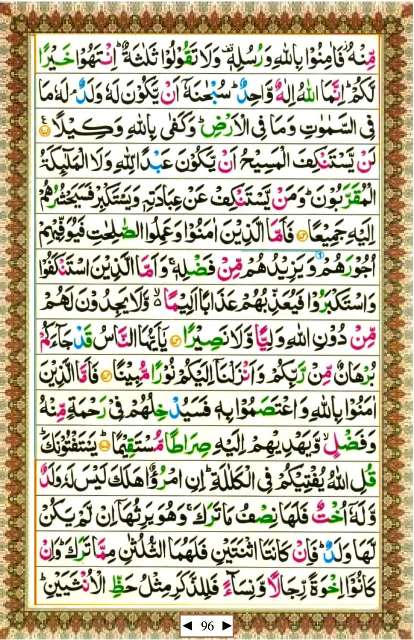 مِّنْهُ ۫ فَاٰمِنُوْا بِاللّٰهِ وَرُسُلِهٖ ۫ وَلَا تَقُوْلُوْا ثَلٰثَةٌ ؕ اِنْتَهُوْا خَيْرًا
لَّكُمْ ؕ اِنَّمَا اللّٰهُ اِلٰهٌ وَّاحِدٌ ؕ سُبْحٰنَهٗۤ اَنْ يَّكُوْنَ لَهٗ وَلَدٌ ۘ لَهٗ مَا
فِى السَّمٰوٰتِ وَمَا فِى الْاَرْضِ ؕ وَكَفٰى بِاللّٰهِ وَكِيْلًا ۟
لَنْ يَّسْتَنْكِفَ الْمَسِيْحُ اَنْ يَّكُوْنَ عَبْدًا لِّلّٰهِ وَلَا الْمَلٰٓئِكَةُ
الْمُقَرَّبُوْنَ ؕ وَمَنْ يَّسْتَنْكِفْ عَنْ عِبَادَتِهٖ وَيَسْتَكْبِرْ فَسَيَحْشُرُهُمْ
اِلَيْهِ جَمِيْعًا ۟ فَاَمَّا الَّذِيْنَ اٰمَنُوْا وَعَمِلُوا الصّٰلِحٰتِ فَيُوَفِّيْهِمْ
اُجُوْرَهُمْ وَيَزِيْدُهُمْ مِّنْ فَضْلِهٖ ۚ وَاَمَّا الَّذِيْنَ اسْتَنْكَفُوْا
وَاسْتَكْبَرُوْا فَيُعَذِّبُهُمْ عَذَابًا اَلِيْمًا ۙ وَّلَا يَجِدُوْنَ لَهُمْ
مِّنْ دُوْنِ اللّٰهِ وَلِيًّا وَّلَا نَصِيْرًا ۟ يٰۤاَيُّهَا النَّاسُ قَدْ جَآءَكُمْ
بُرْهَانٌ مِّنْ رَّبِّكُمْ وَاَنْزَلْنَاۤ اِلَيْكُمْ نُوْرًا مُّبِيْنًا ۟ فَاَمَّا الَّذِيْنَ
اٰمَنُوْا بِاللّٰهِ وَاعْتَصَمُوْا بِهٖ فَسَيُدْخِلُهُمْ فِىْ رَحْمَةٍ مِّنْهُ
وَفَضْلٍ ۙ وَّيَهْدِيْهِمْ اِلَيْهِ صِرَاطًا مُّسْتَقِيْمًا ۟ يَسْتَفْتُوْنَكَ ؕ
قُلِ اللّٰهُ يُفْتِيْكُمْ فِى الْكَلٰلَةِ ؕ اِنِ امْرُؤٌا هَلَكَ لَيْسَ لَهٗ وَلَدٌ
وَّلَهٗۤ اُخْتٌ فَلَهَا نِصْفُ مَا تَرَكَ ۚ وَهُوَ يَرِثُهَاۤ اِنْ لَّمْ يَكُنْ
لَّهَا وَلَدٌ ؕ فَاِنْ كَانَتَا اثْنَتَيْنِ فَلَهُمَا الثُّلُثٰنِ مِمَّا تَرَكَ ؕ وَاِنْ
كَانُوْۤا اِخْوَةً رِّجَالًا وَّنِسَآءً فَلِلذَّكَرِ مِثْلُ حَظِّ الْاُنْثَيَيْنِ ؕ
◄ 96 ►